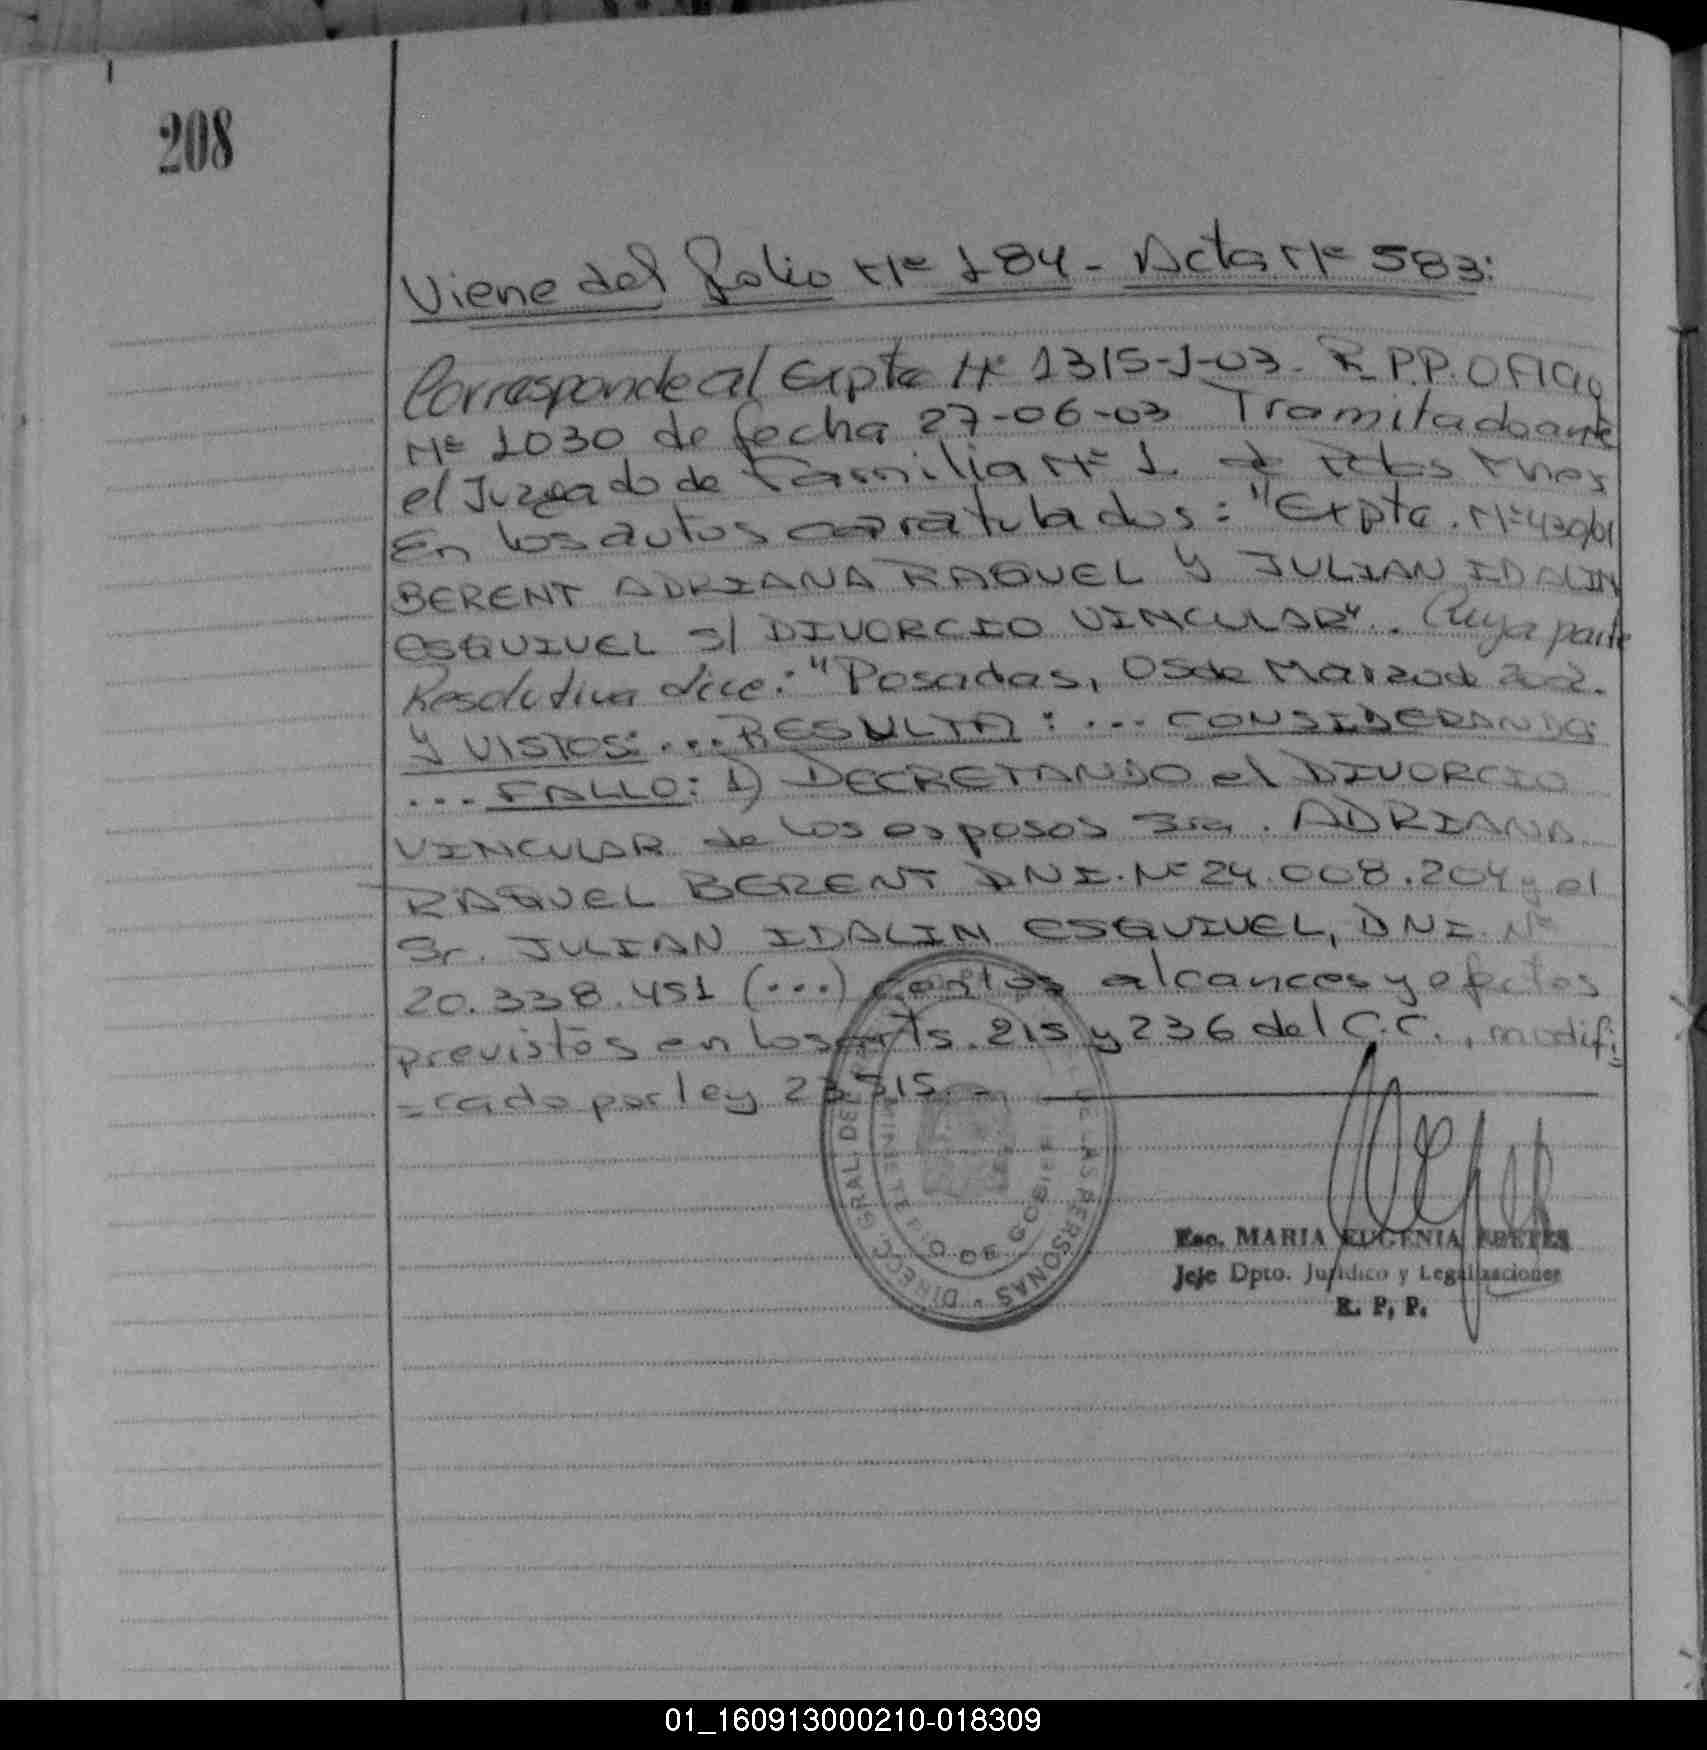 208
Viene del folio Nº 184 - Acta Nº 583:
Corresponde al Expte Nº 1315-J-03. R.P.P. Oficio
Nº 1030 de fecha 27-06-03 Tramitado ante
el Juzgado de Familia Nº 1. de Pdas Mnes
En los autos caratulados: "Expte. Nº 430/01
BERENT ADRIANA RAQUEL Y JULIAN IDALIN
ESQUIVEL s/ DIVORCIO VINCULAR". Cuya parte
Resolutiva dice: "Posadas, 05 de Marzo de 2002.
Y VISTOS: ... RESULTA: ... CONSIDERANDO:
... FALLO: 1) DECRETANDO el DIVORCIO
VINCULAR de los esposos Sra. ADRIANA
RAQUEL BERENT DNI. Nº 24.008.204 y el
Sr. JULIAN IDALIN ESQUIVEL, DNI. Nº
20.338.451 (...) con los alcances y efectos
previstos en los arts. 215 y 236 del C.C., modifi=
=cado por ley 23.515.-
DIRECC. GRAL. DE LAS PERSONAS
MINISTERIO DE GOBIER
Esc. MARIA EUGENIA
Jefe Dpto. Jurídico y Legalizaciones
R. P. P.
01_160913000210-018309